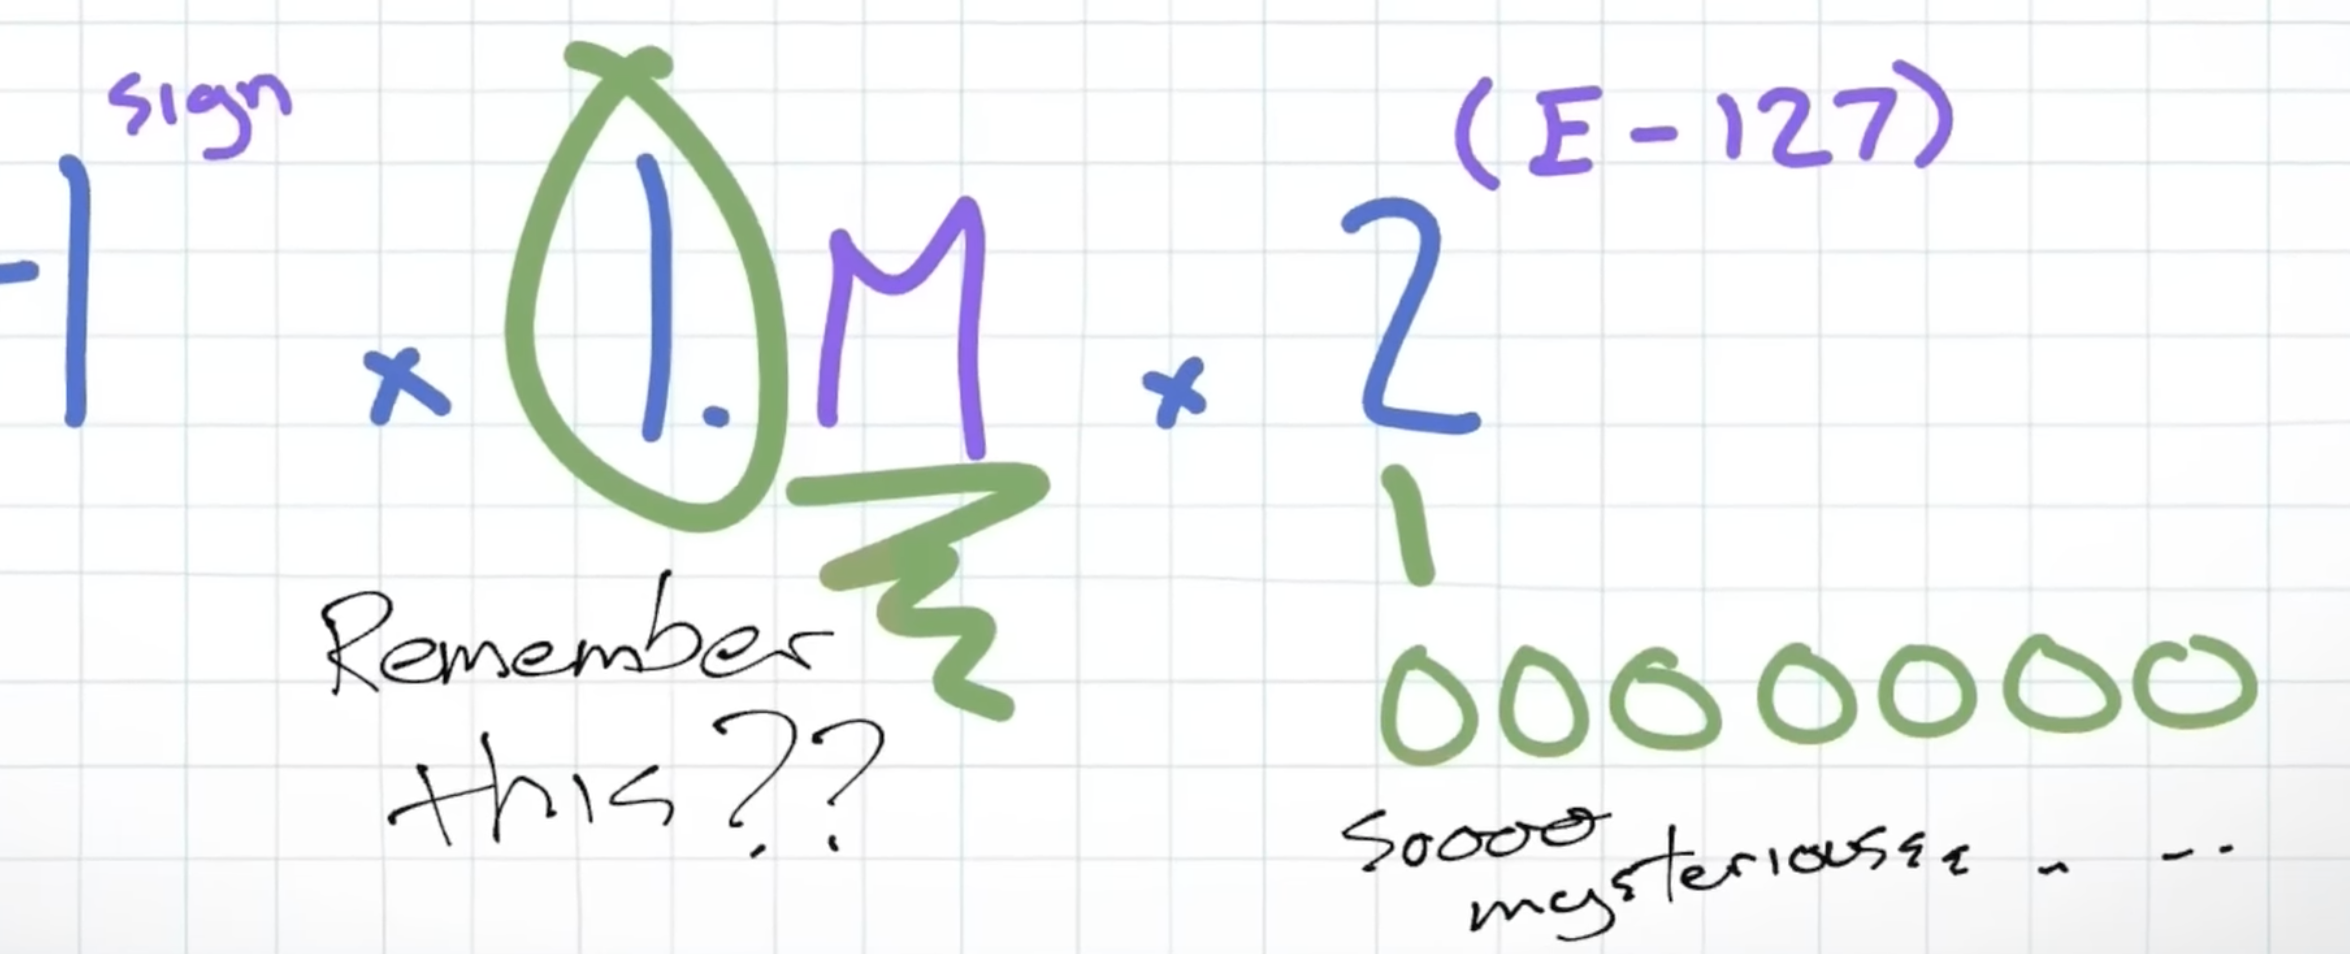 -1 sign × 1.M × 2 (E-127)
1
Remember
this??
0000000
soooo
mysteriousss . . . .